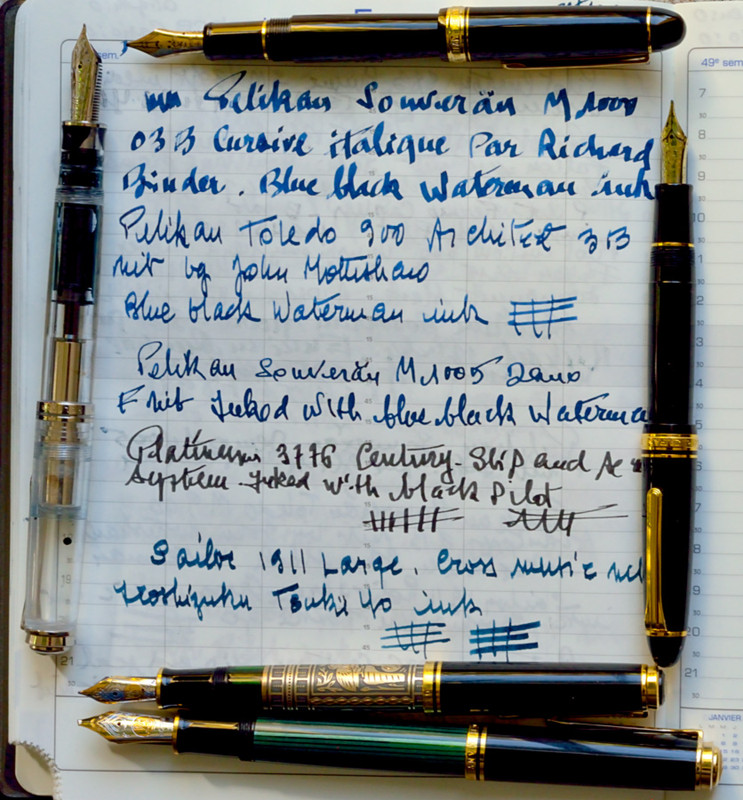 49e sem.
sem.
7
8
9
10
Pelikan Souverän M1000
03B Cursive italique Par Richard
Binder. Blue black Waterman ink
Pelikan Toledo 900 Architect 3B
nib by John Mottishaw
Blue black Waterman ink
Pelikan Souverän M1005
F nib Inked With blue black Waterma
Platinum 3776 Century. Slip and
System. Inked with black Pilot
Sailor 1911 Large. Cross
Iroshizuku Tsuki Yo ink
19
20
21
21
JANVIER